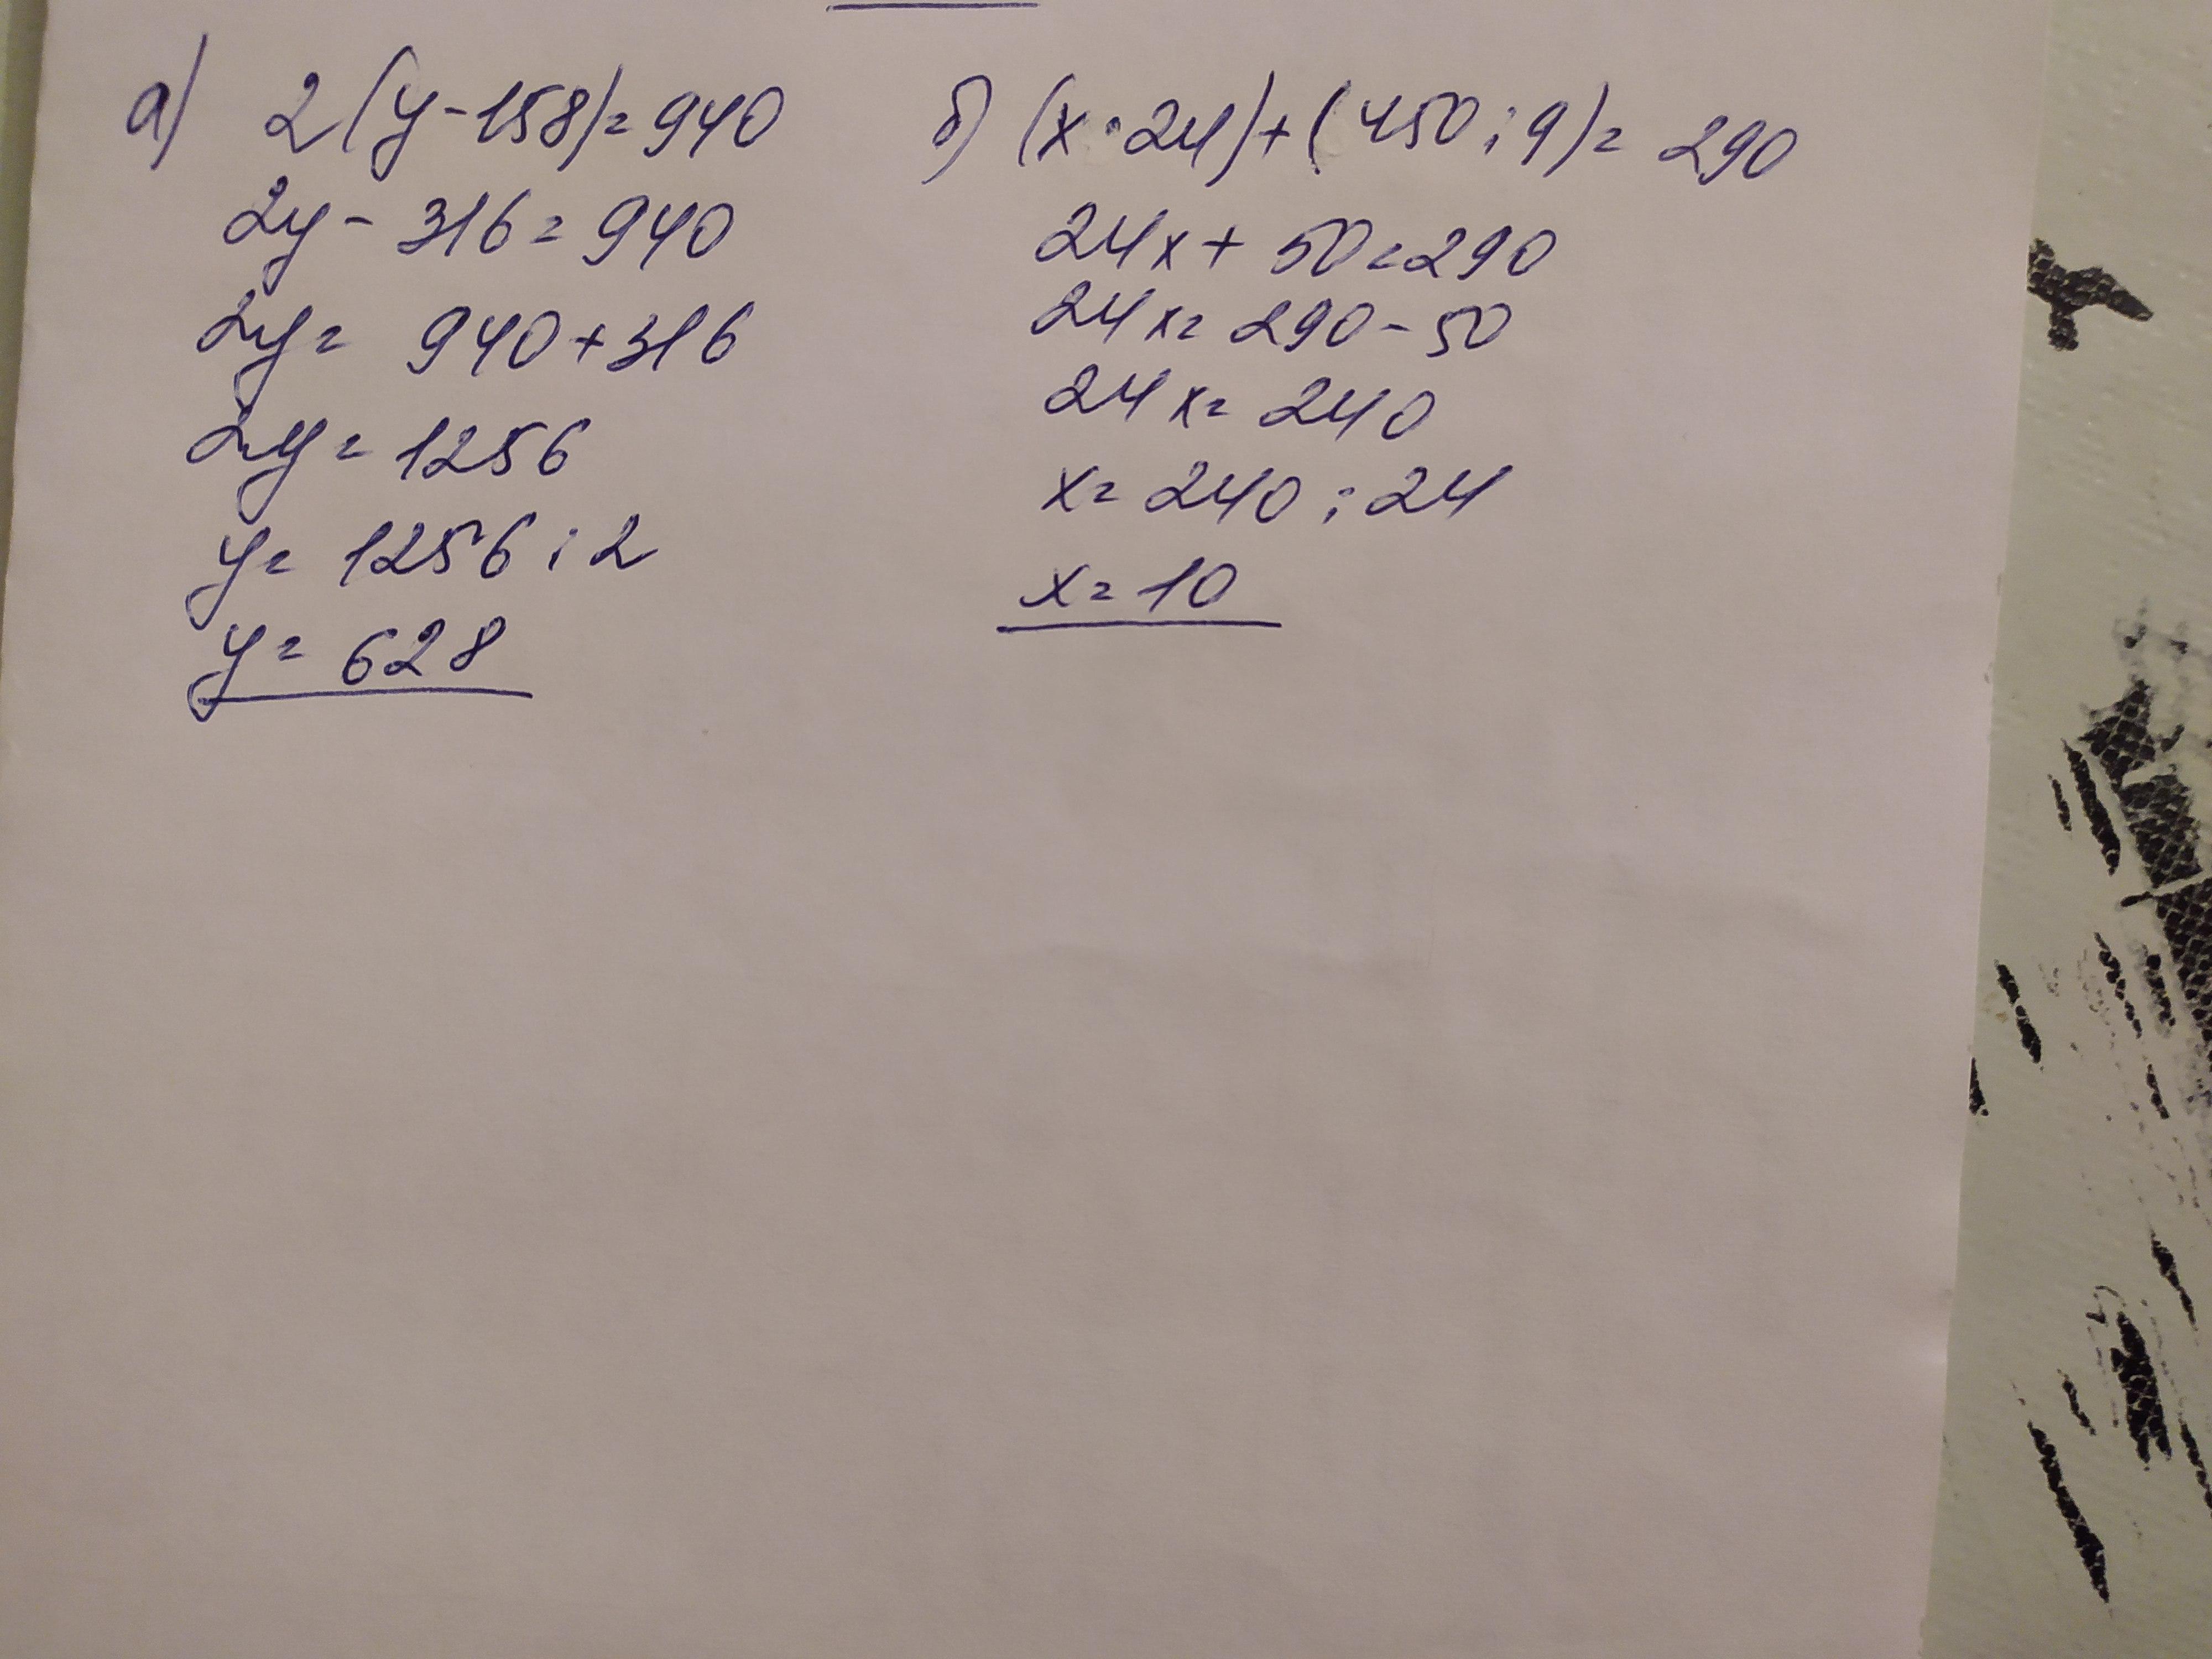 а) 2(y-158)=940
2y-316=940
2y=940+316
2y=1256
y=1256:2
y=628
б) (x·24)+(450:9)=290
24x+50=290
24x=290-50
24x=240
x=240:24
x=10